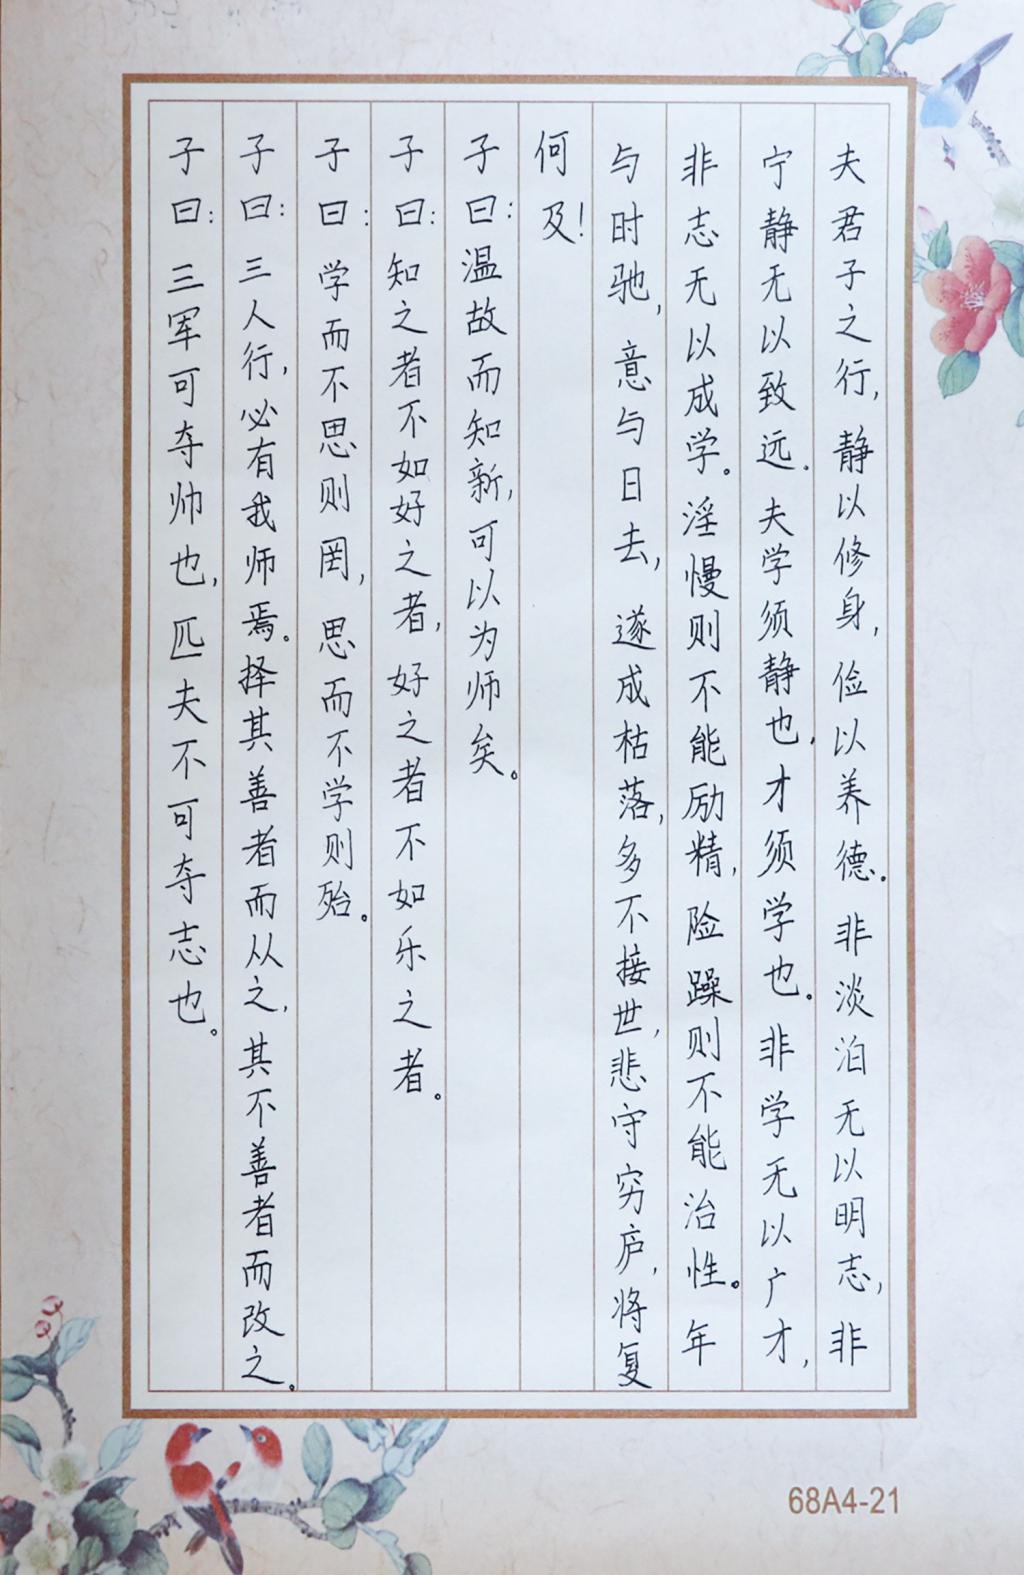 夫君子之行，静以修身，俭以养德。非淡泊无以明志，非
宁静无以致远。夫学须静也，才须学也。非学无以广才，
非志无以成学。淫慢则不能励精，险躁则不能治性。年
与时驰，意与日去，遂成枯落，多不接世，悲守穷庐，将复
何及！
子曰：温故而知新，可以为师矣。
子曰：知之者不如好之者，好之者不如乐之者。
子曰：学而不思则罔，思而不学则殆。
子曰：三人行，必有我师焉。择其善者而从之，其不善者而改之。
子曰：三军可夺帅也，匹夫不可夺志也。
68A4-21